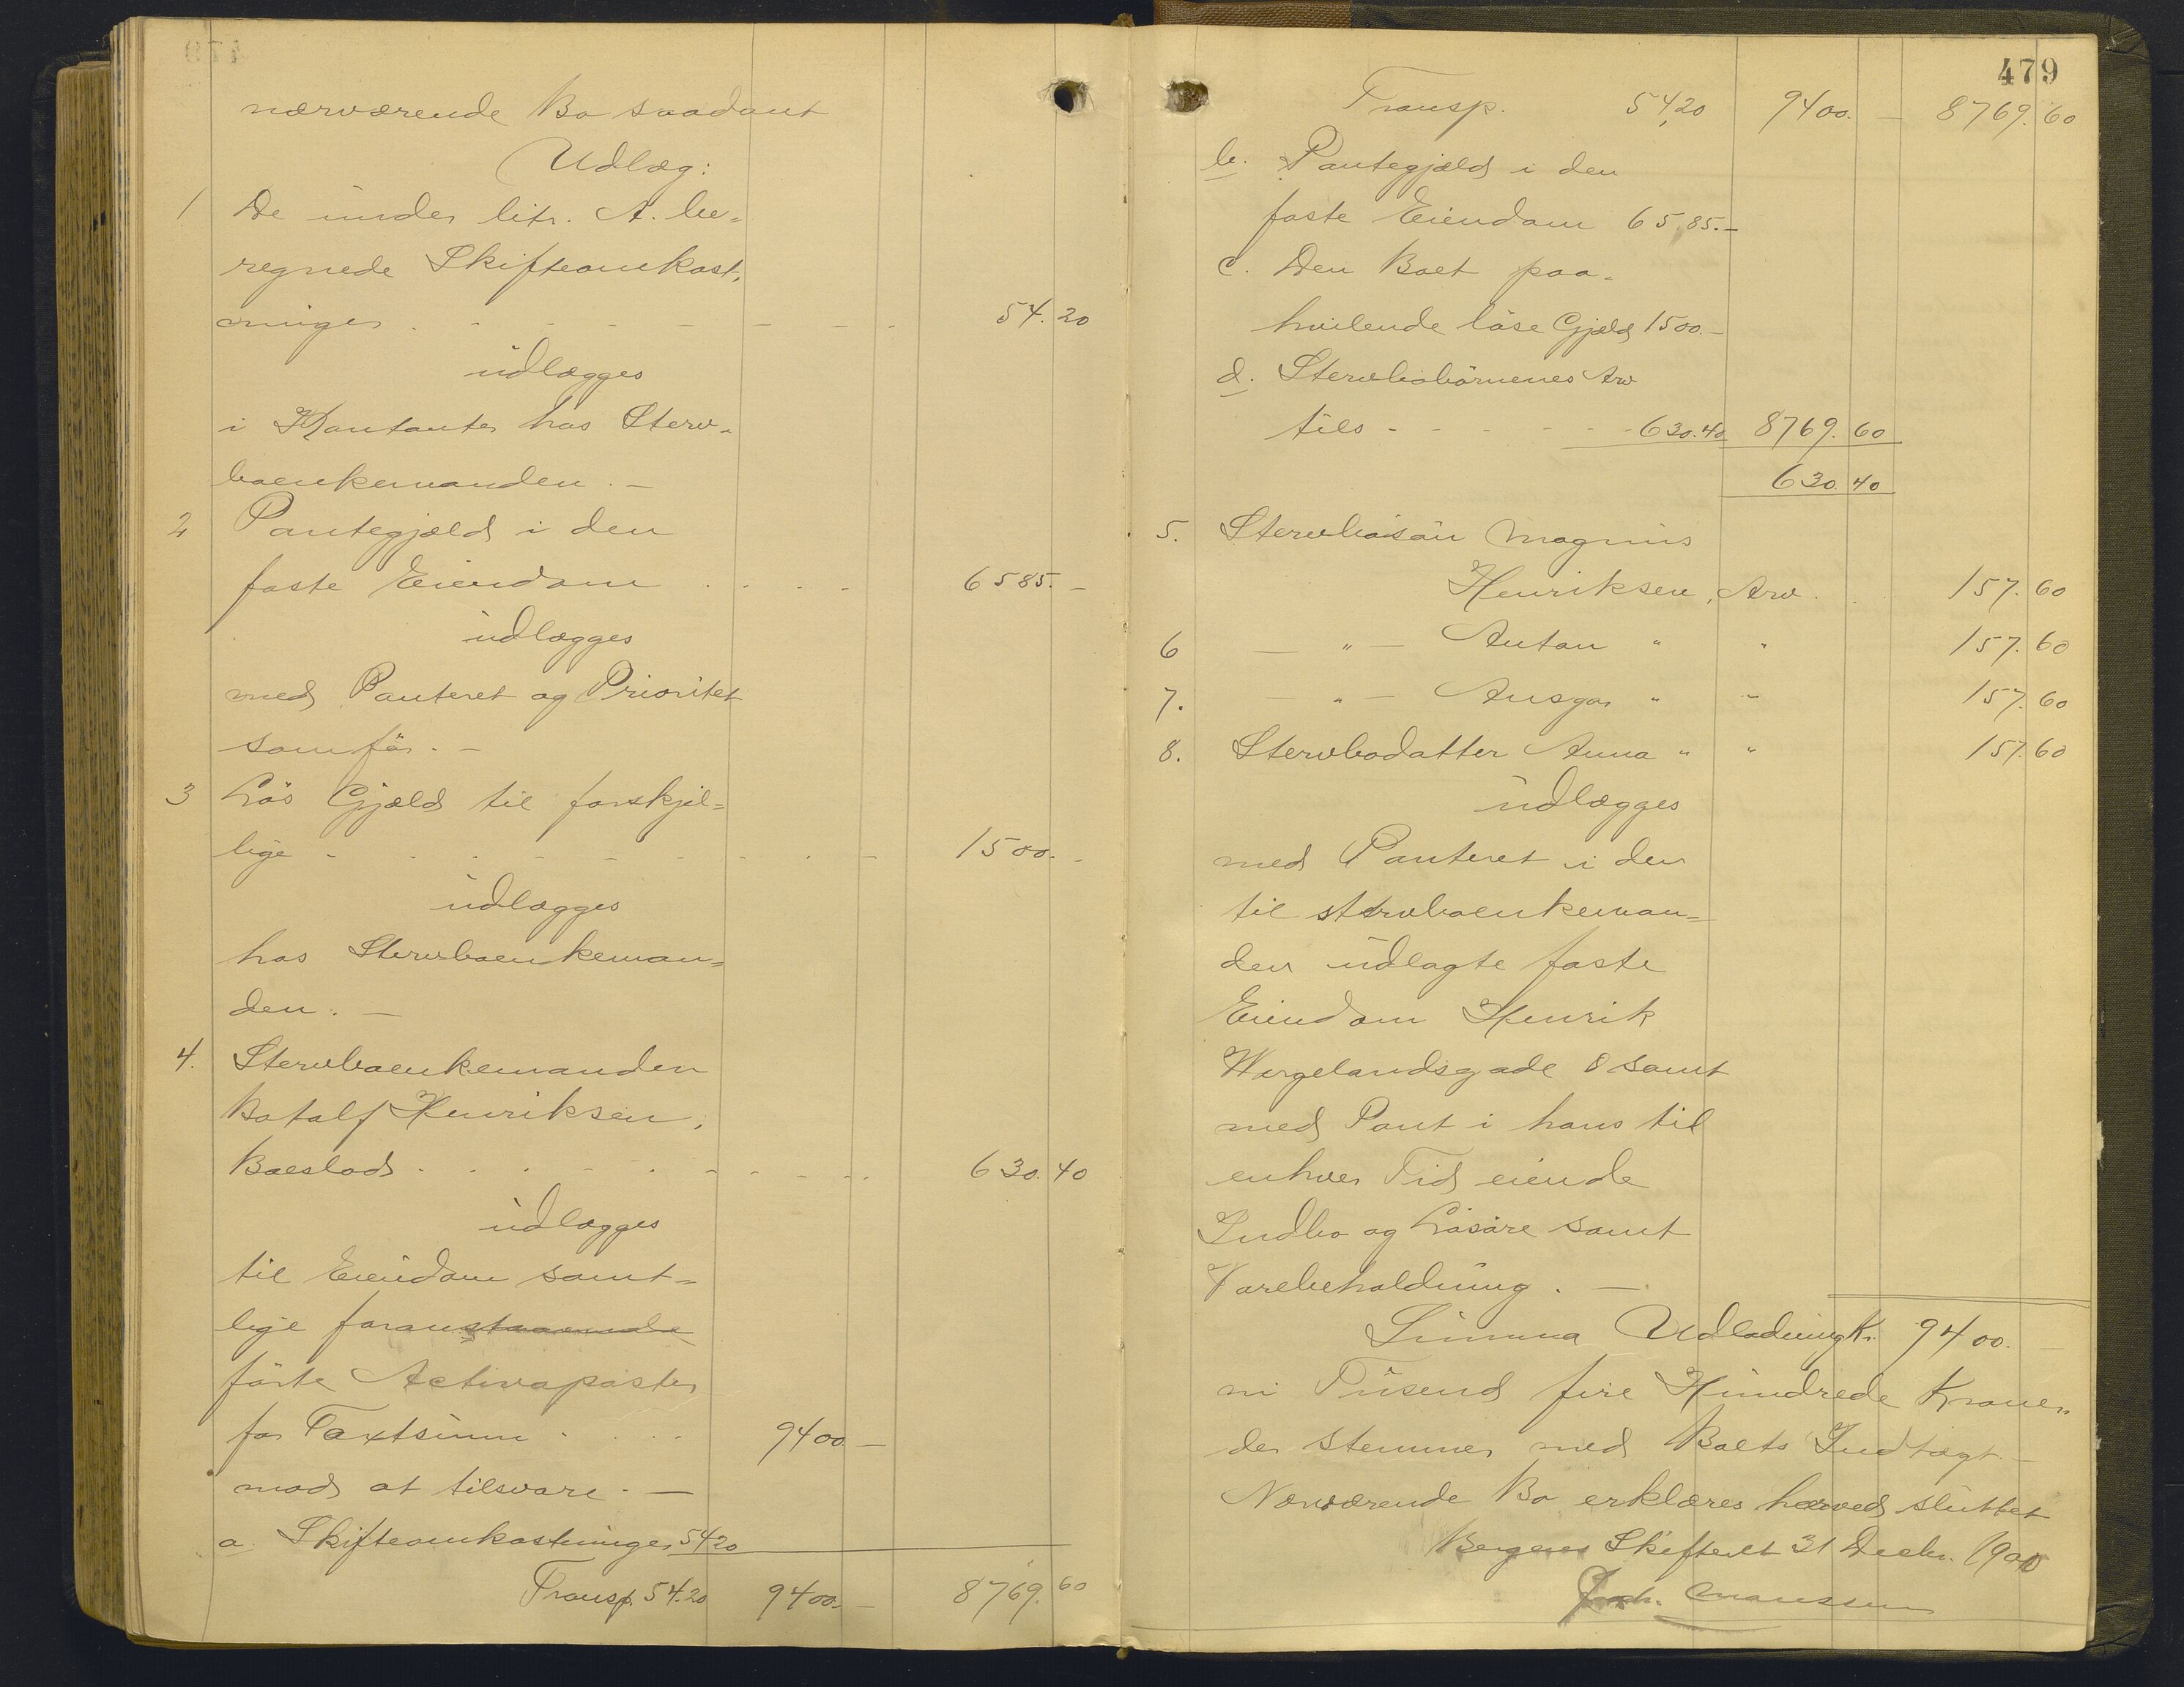 nærværende Bo saadant
Udlæg:
1 De under litr. A. be-
regnede Skifteomkost-
ninger . - - - - - - - 54.20
udlægges
i Kontanter hos Sterv-
boenkemanden. -
2 Pantegjæld i den
faste Eiendom . . . . 6585. -
udlægges
med Panteret og Prioritet
som för. -
3 Lös Gjæld til forskjel-
lige - - - - - - - - - 1500. -
udlægges
hos Stervboenkeman-
den. -
4. Stervboenkemanden
Botolf Henriksen,
Boeslod . . . - . - - - .. 630.40
udlægges
til Eiendom samt-
lige foranstaaende
förte Activaposter
for Taxtsum . . . . 9400. -
mod at tilsvare. -
a. Skifteomkostninger 54.20
Transp. 54.20 9400. - 8769.60
479
Transp. 54,20 9400. - 8769.60
b. Pantegjæld i den
faste Eiendom 6585. -
c. Den Boet paa-
hvilende löse Gjæld 1500. -
d. Stervbobörnenes Arv
tils - - - - - - 630.40 8769.60
630.40
5. Stervbosön Magnus
Henriksen, Arv . . 157.60
6 - " - Anton " " 157.60
7. - " - Ansgar " " 157.60
8. Stervbodatter Anna " " 157.60
udlægges
med Panteret i den
til stervboenkeman-
den udlagte faste
Eiendom Henrik
Wergelandsgade 8 samt
med Pant i hans til
enhver Tid eiende
Indbo og Lösöre samt
Varebeholdning. -
Summa Udlodning Kr. 9400. -
ni Tusend fire Hundrede Kroner
der stemmer med Boets Indtægt. -
Nærværende Bo erklæres herved sluttet
Bergens Skifteret 31 Decbr. 1900